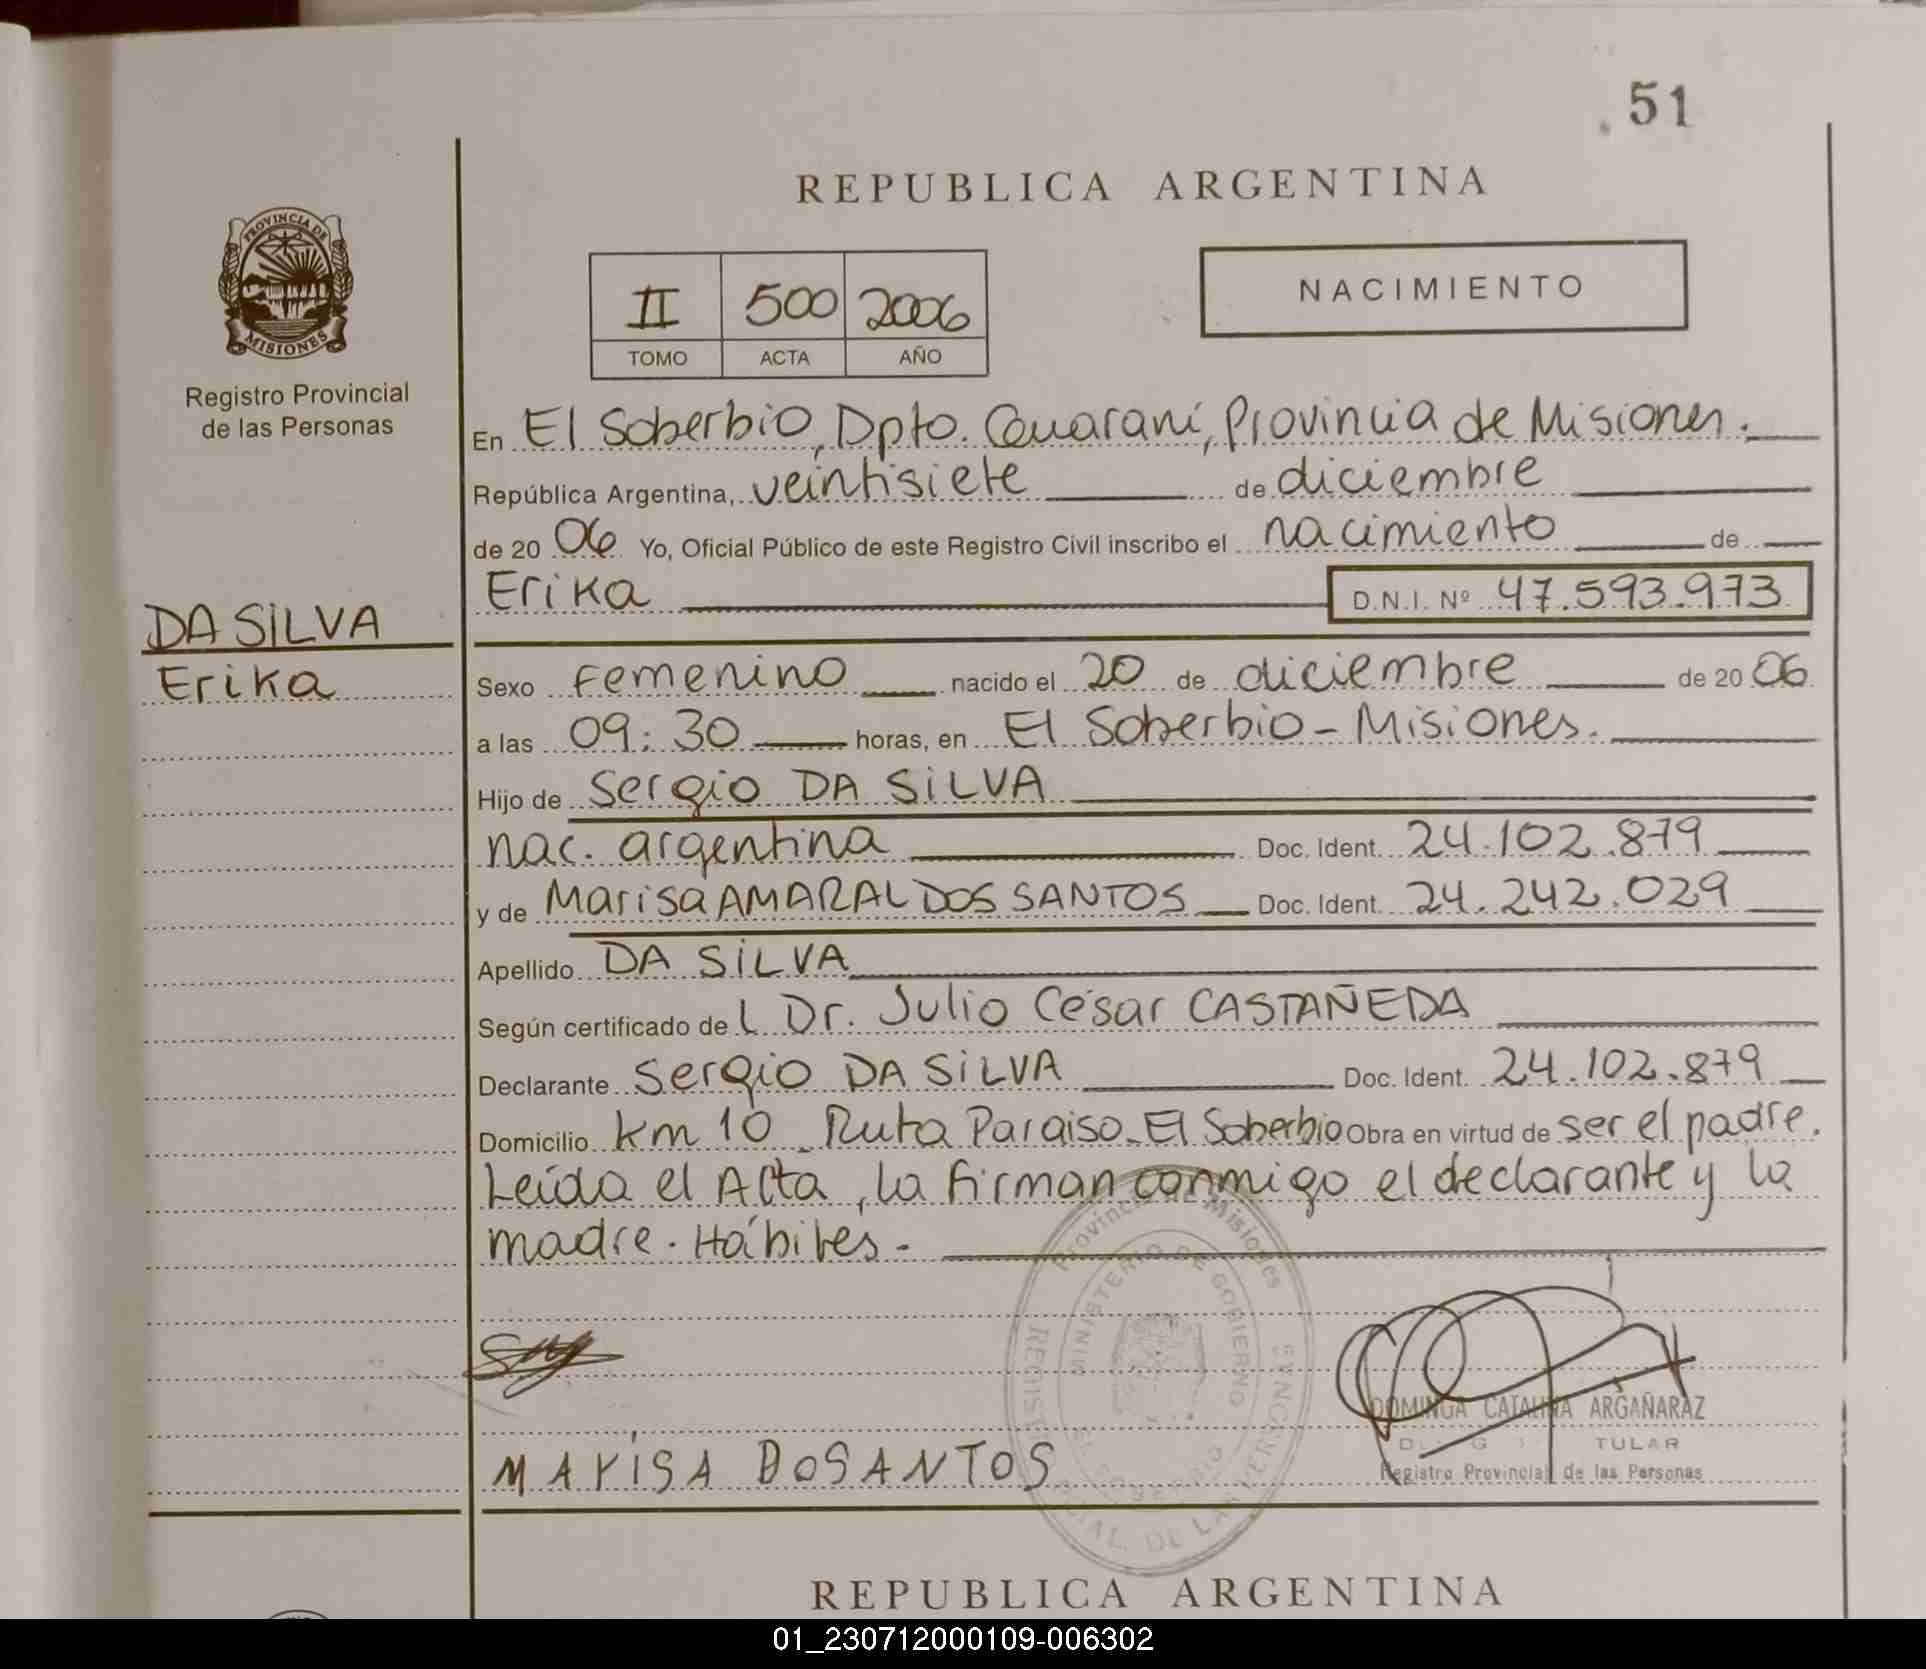 51
REPUBLICA ARGENTINA
PROVINCIA DE
MISIONES
Registro Provincial
de las Personas
II 500 2006
TOMO ACTA AÑO
NACIMIENTO
En El Soberbio, Dpto. Guaraní, Provincia de Misiones.
República Argentina, veintisiete de diciembre
de 20 06 Yo, Oficial Público de este Registro Civil inscribo el nacimiento de
Erika D.N.I. Nº 47.593.973
DA SILVA
Erika
Sexo Femenino nacido el 20 de diciembre de 20 06
a las 09:30 horas, en El Soberbio - Misiones.
Hijo de Sergio DA SILVA
nac. argentina Doc. Ident. 24.102.879
y de Marisa AMARAL DOS SANTOS Doc. Ident. 24.242.029
Apellido DA SILVA
Según certificado de l Dr. Julio César CASTAÑEDA
Declarante Sergio DA SILVA Doc. Ident. 24.102.879
Domicilio Km 10 - Ruta Paraiso - El Soberbio Obra en virtud de ser el padre.
Leída el Acta, la firman conmigo el declarante y la
madre. Hábiles -
Provincia Misiones
MINISTERIO DE GOBIERNO
DOMINGA CATALINA ARGAÑARAZ
Registro Provincial de las Personas
MAYISA DOSANTOS
REPUBLICA ARGENTINA
01_230712000109-006302